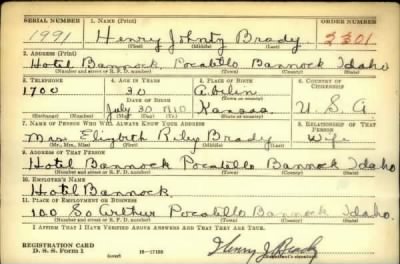 SERIAL NUMBER 1. NAME (Print) ORDER NUMBER
1991 Henry Johnty Brady 2301
(First) (Middle) (Last)
2. ADDRESS (Print)
Hotel Bannock Pocatello Bannock Idaho
(Number and street or R. F. D. number) (Town) (County) (State)
3. TELEPHONE 4. AGE IN YEARS 5. PLACE OF BIRTH 6. COUNTRY OF CITIZENSHIP
1700 30 Abilin
DATE OF BIRTH
July 30 1910 Kansas U. S. A
(Exchange) (Number) (Mo.) (Day) (Yr.) (State or country)
7. NAME OF PERSON WHO WILL ALWAYS KNOW YOUR ADDRESS 8. RELATIONSHIP OF THAT PERSON
Mrs Elizbth Riley Brady Wife
(Mr., Mrs., Miss) (First) (Middle) (Last)
9. ADDRESS OF THAT PERSON
Hotel Bannock Pocatello Bannock Idaho
(Number and street or R. F. D. number) (Town) (County) (State)
10. EMPLOYER'S NAME
Hotel Bannock
11. PLACE OF EMPLOYMENT OR BUSINESS
100 So Arthur Pocatello Bannock Idaho.
(Number and street or R. F. D. number) (Town) (County) (State)
I AFFIRM THAT I HAVE VERIFIED ABOVE ANSWERS AND THAT THEY ARE TRUE.
REGISTRATION CARD
D. S. S. Form 1 16-17105 Henry J Brady
(Registrant's signature)